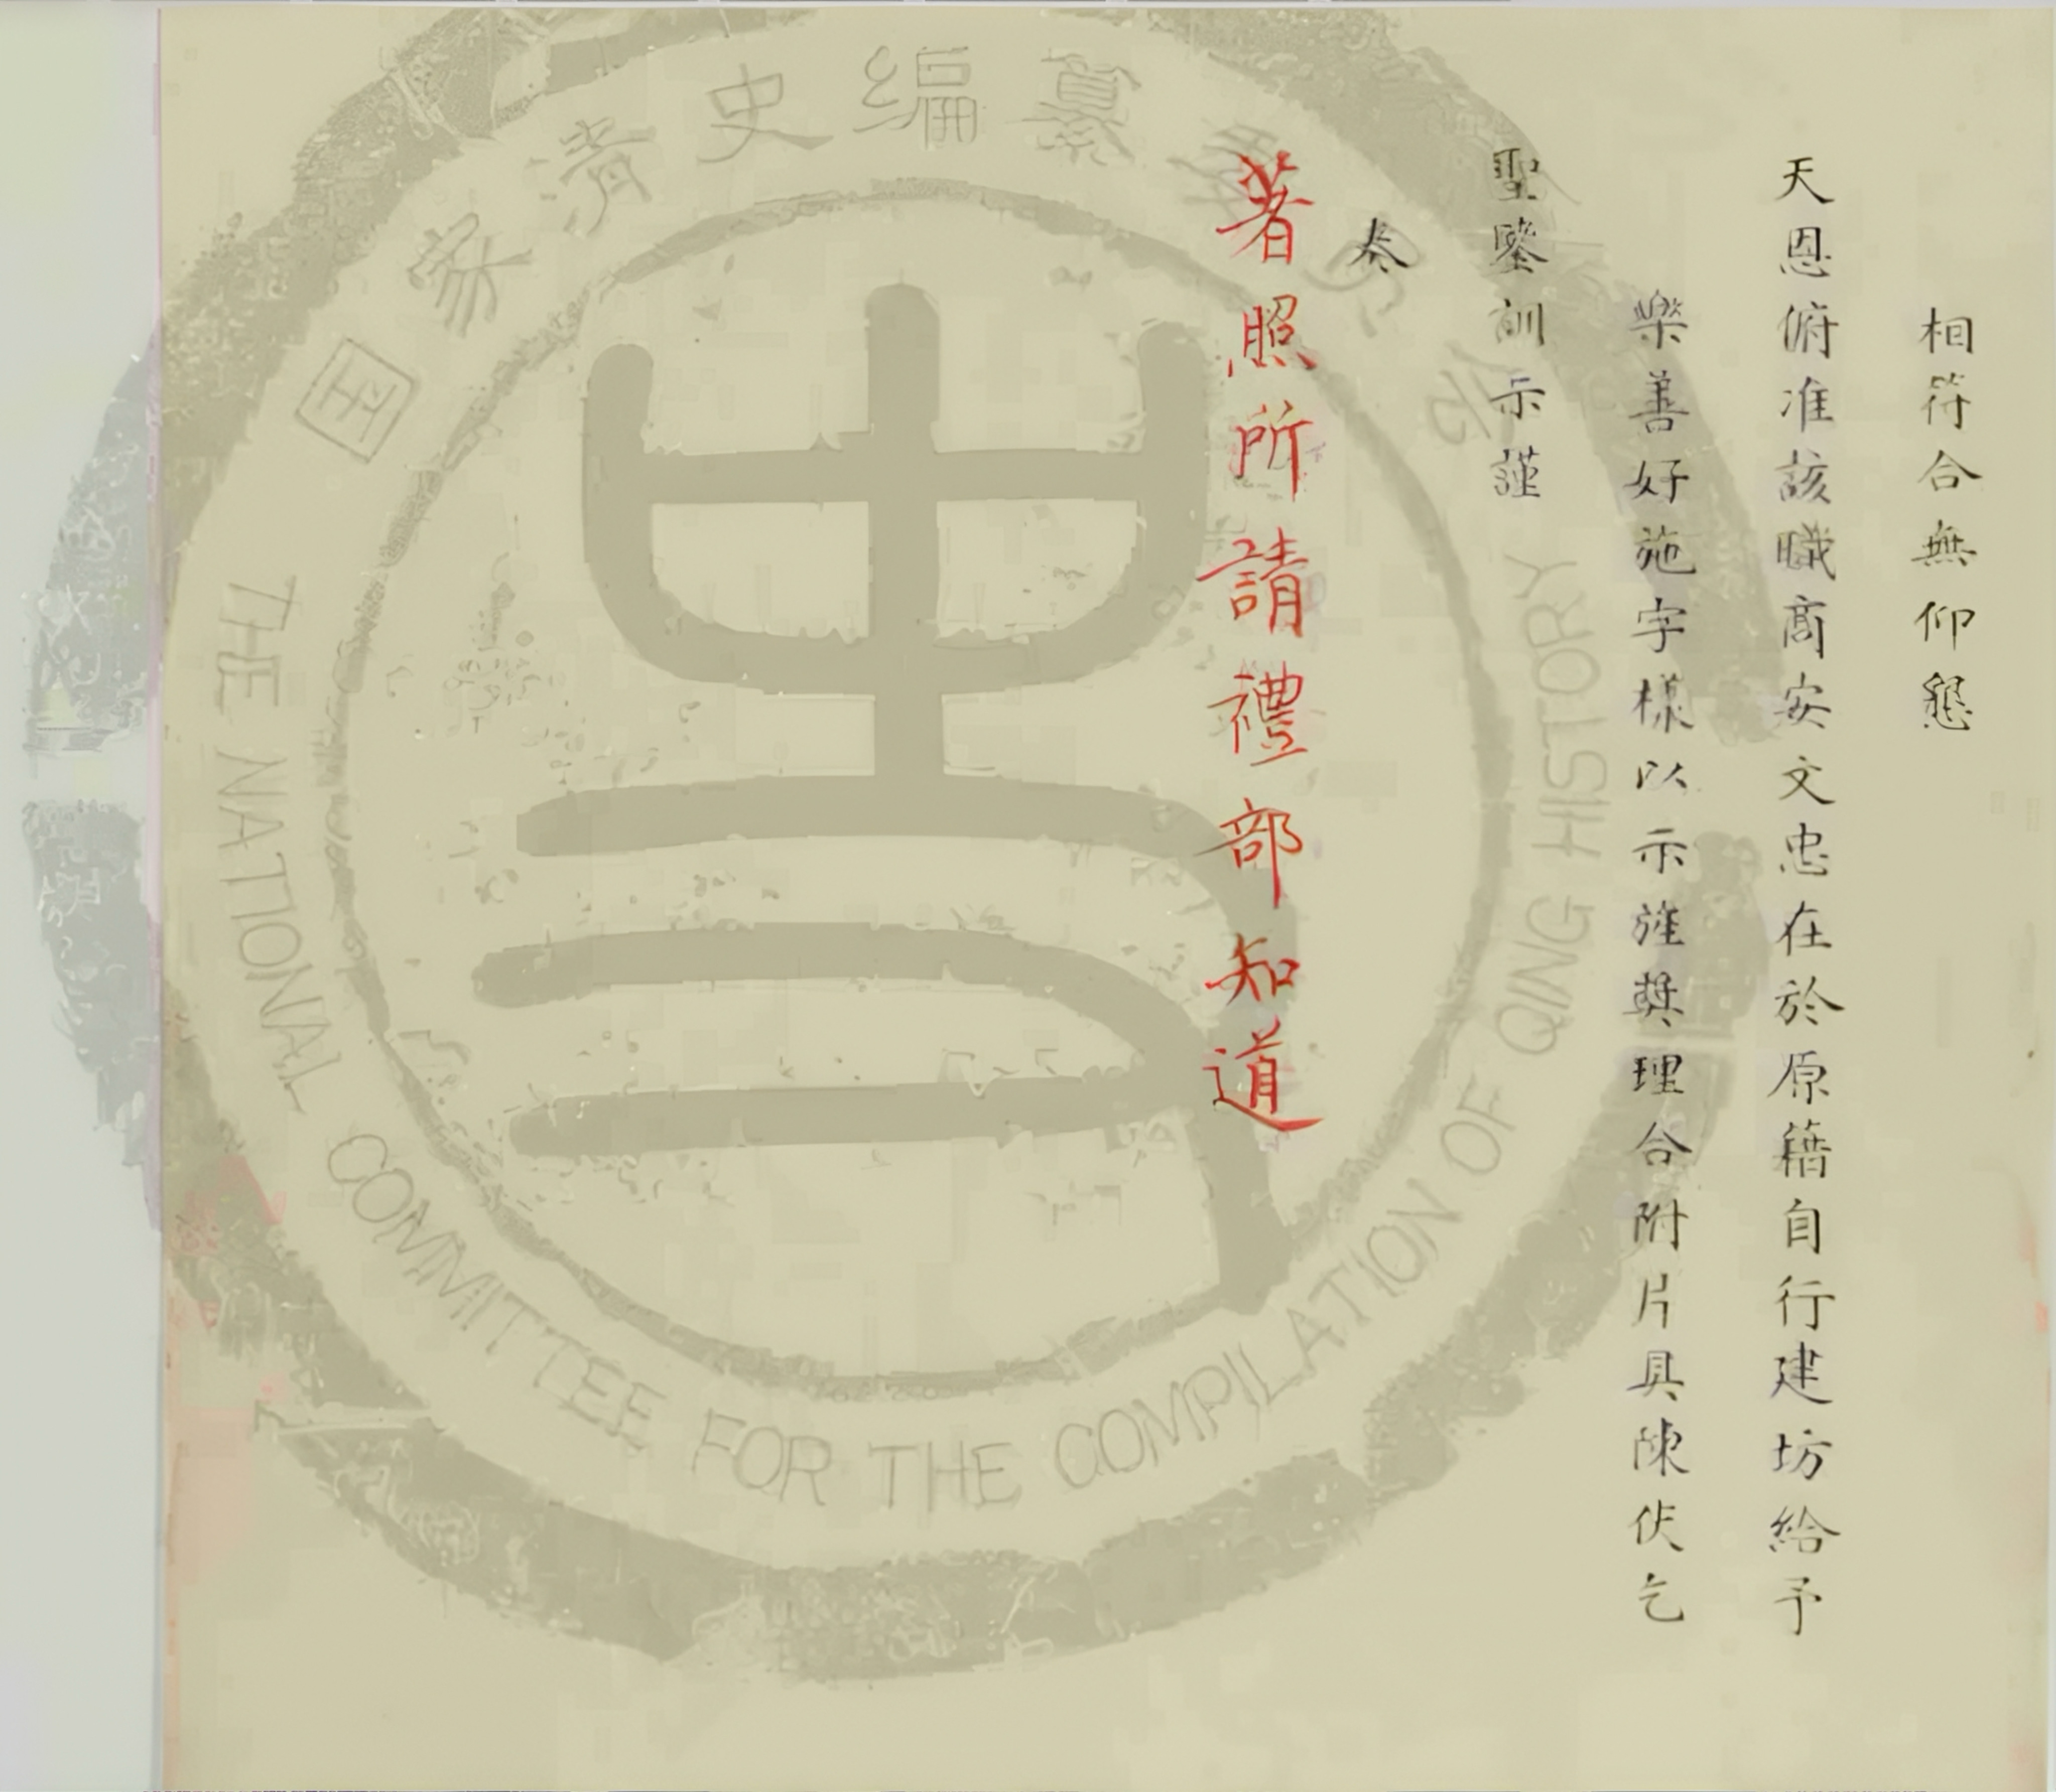 相符合無仰懇
天恩俯准該職商安文忠在於原籍自行建坊給予
樂善好施字樣以示旌奬理合附片具陳伏乞
聖鑒訓示謹
奏
著照所請禮部知道
国家清史编纂委员会
THE NATIONAL COMMITTEE FOR THE COMPILATION OF QING HISTORY